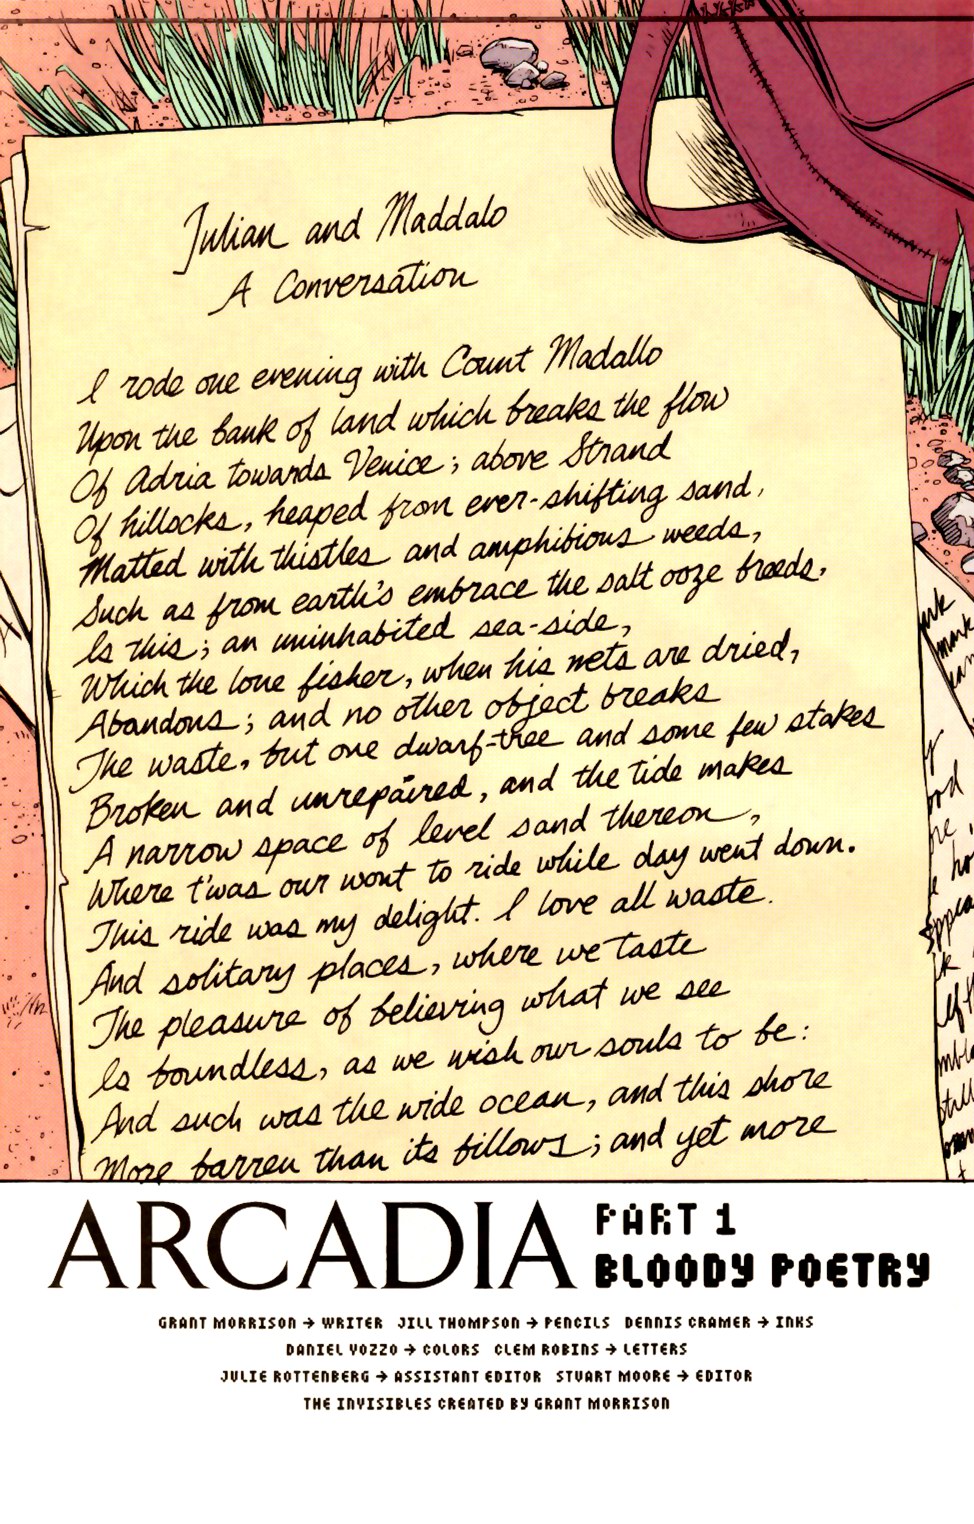 Julian and Maddalo
A Conversation
I rode one evening with Count Madallo
Upon the bank of land which breaks the flow
Of Adria towards Venice; above Strand
Of hillocks, heaped from ever-shifting sand,
Matted with thistles and amphibious weeds,
Such as from earth's embrace the salt ooze breeds,
Is this; an uninhabited sea-side,
Which the lone fisher, when his nets are dried,
Abandons; and no other object breaks
The waste, but one dwarf-tree and some few stakes
Broken and unrepaired, and the tide makes
A narrow space of level sand thereon,
Where t'was our wont to ride while day went down.
This ride was my delight. I love all waste.
And solitary places, where we taste
The pleasure of believing what we see
Is boundless, as we wish our souls to be:
And such was the wide ocean, and this shore
More barren than its billows; and yet more
ARCADIA
PART 1
BLOODY POETRY
GRANT MORRISON → WRITER JILL THOMPSON → PENCILS DENNIS CRAMER → INKS
DANIEL VOZZO → COLORS CLEM ROBINS → LETTERS
JULIE ROTTENBERG → ASSISTANT EDITOR STUART MOORE → EDITOR
THE INVISIBLES CREATED BY GRANT MORRISON